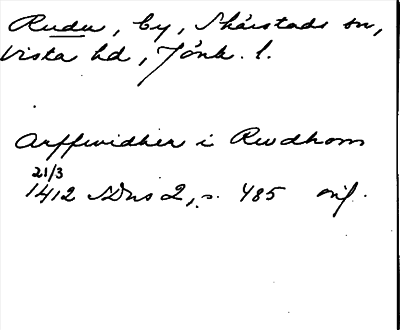 Rudu, by, Skärstads sn,
Vista hd, Jönk. l.
Arffwidher i Rwdhom
21/3
1412 SDns 2, s. 485 orig.